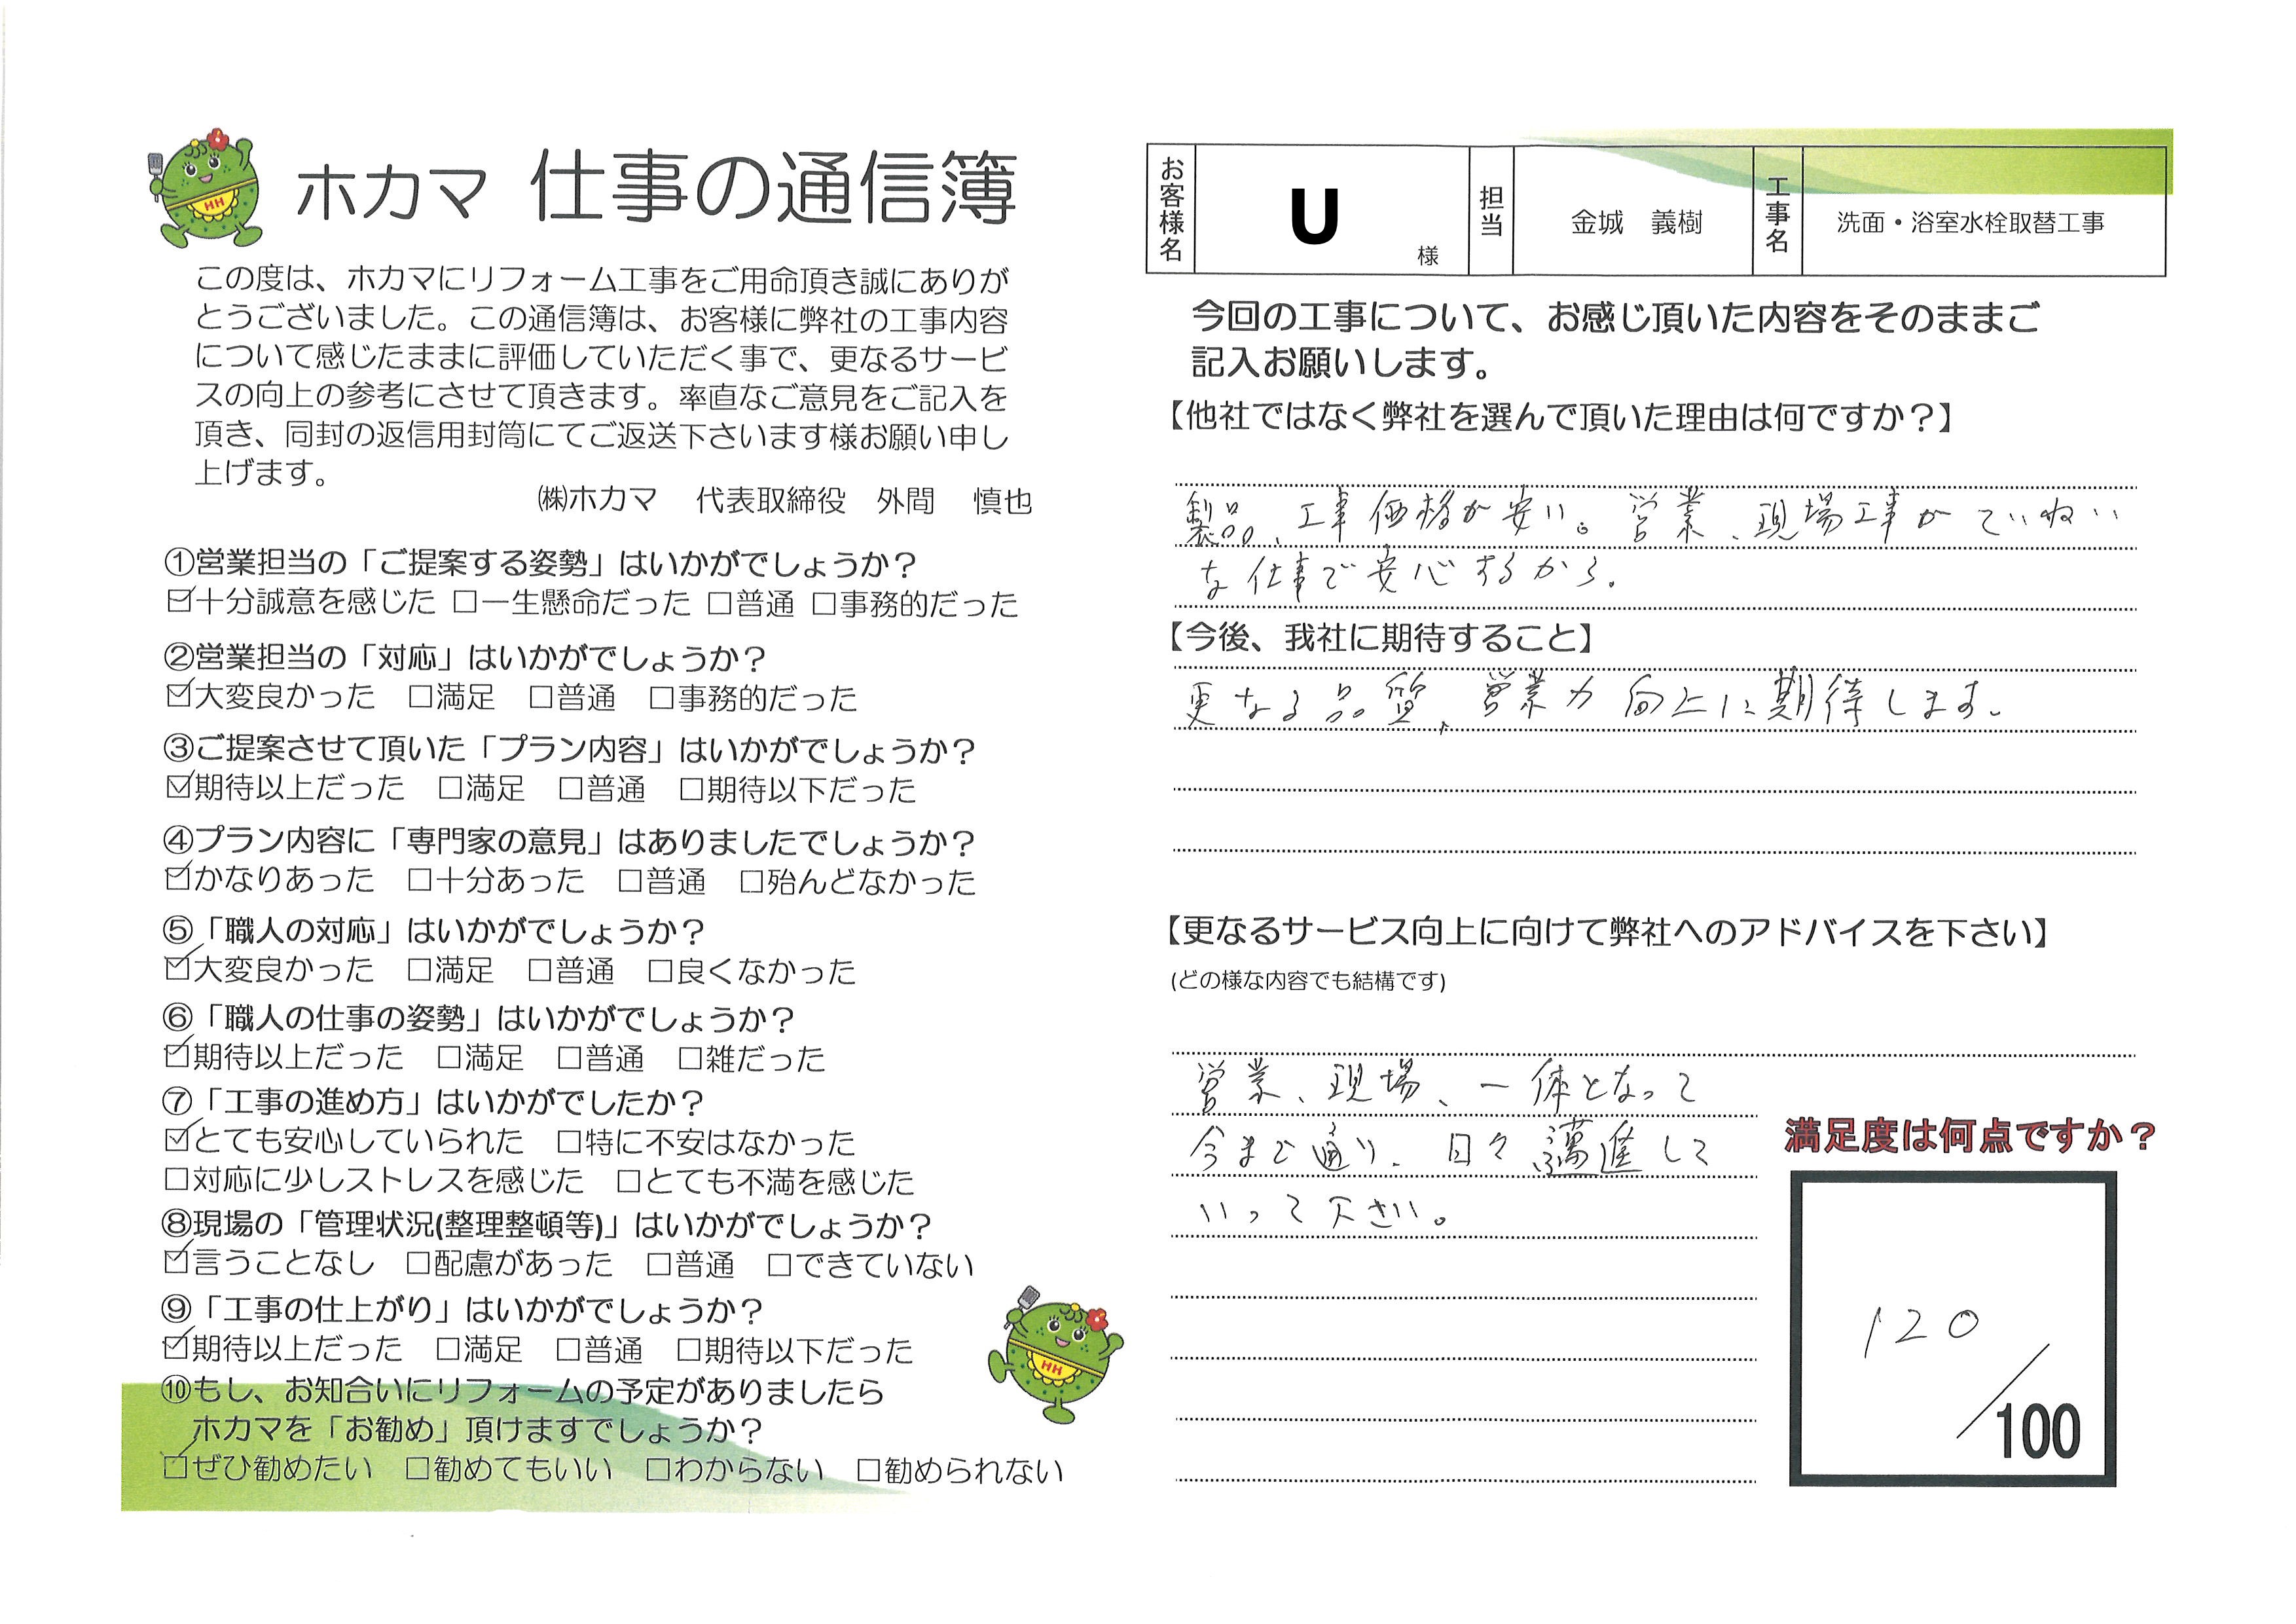 ホカマ 仕事の通信簿
この度は、ホカマにリフォーム工事をご用命頂き誠にありが
とうございました。この通信簿は、お客様に弊社の工事内容
について感じたままに評価していただく事で、更なるサービ
スの向上の参考にさせて頂きます。率直なご意見をご記入を
頂き、同封の返信用封筒にてご返送下さいます様お願い申し
上げます。
㈱ホカマ 代表取締役 外間 慎也
①営業担当の「ご提案する姿勢」はいかがでしょうか？
☑十分誠意を感じた □一生懸命だった □普通 □事務的だった
②営業担当の「対応」はいかがでしょうか？
☑大変良かった □満足 □普通 □事務的だった
③ご提案させて頂いた「プラン内容」はいかがでしょうか？
☑期待以上だった □満足 □普通 □期待以下だった
④プラン内容に「専門家の意見」はありましたでしょうか？
☑かなりあった □十分あった □普通 □殆んどなかった
⑤「職人の対応」はいかがでしょうか？
☑大変良かった □満足 □普通 □良くなかった
⑥「職人の仕事の姿勢」はいかがでしょうか？
☑期待以上だった □満足 □普通 □雑だった
⑦「工事の進め方」はいかがでしたか？
☑とても安心していられた □特に不安はなかった
□対応に少しストレスを感じた □とても不満を感じた
⑧現場の「管理状況(整理整頓等)」はいかがでしょうか？
☑言うことなし □配慮があった □普通 □できていない
⑨「工事の仕上がり」はいかがでしょうか？
☑期待以上だった □満足 □普通 □期待以下だった
⑩もし、お知合いにリフォームの予定がありましたら
ホカマを「お勧め」頂けますでしょうか？
☑ぜひ勧めたい □勧めてもいい □わからない □勧められない
HH
HH
お客様名 U 様 担当 金城 義樹 工事名 洗面・浴室水栓取替工事
今回の工事について、お感じ頂いた内容をそのままご
記入お願いします。
【他社ではなく弊社を選んで頂いた理由は何ですか？】
製品、工事価格が安い。営業、現場工事がていねい
な仕事で安心するから。
【今後、我社に期待すること】
更なる品質、営業力向上に期待します。
【更なるサービス向上に向けて弊社へのアドバイスを下さい】
(どの様な内容でも結構です)
営業、現場、一体となって
今まで通り、日々邁進して
いって下さい。
満足度は何点ですか？
120
/100